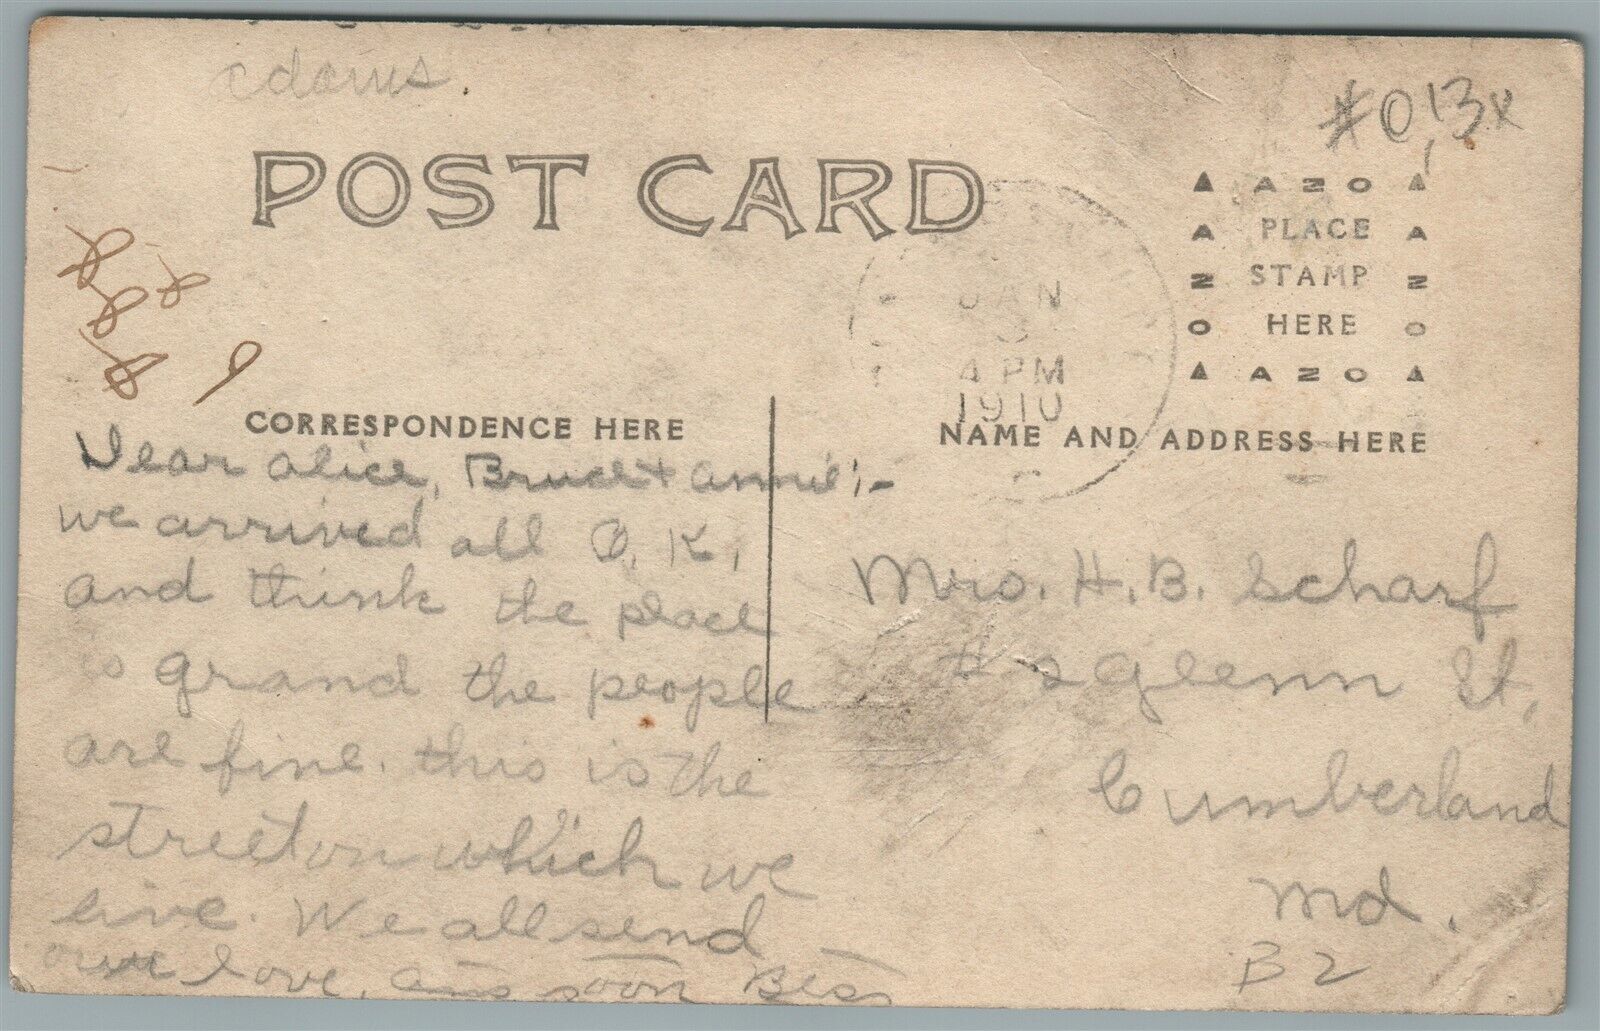 adams.
#013x
POST CARD
▲ A Z O ▲
PLACE
STAMP
HERE
▲ A Z O ▲
JAN
4 PM
1910
CORRESPONDENCE HERE
NAME AND ADDRESS HERE
Dear Alice, Bruce + Annie:-
we arrived all O.K,
and think the place
is grand the people
are fine. this is the
street on which we
live. We all send
our love, ans soon Bess
Mrs. H. B. Scharf
# 2 Glenn St,
Cumberland
Md.
B2